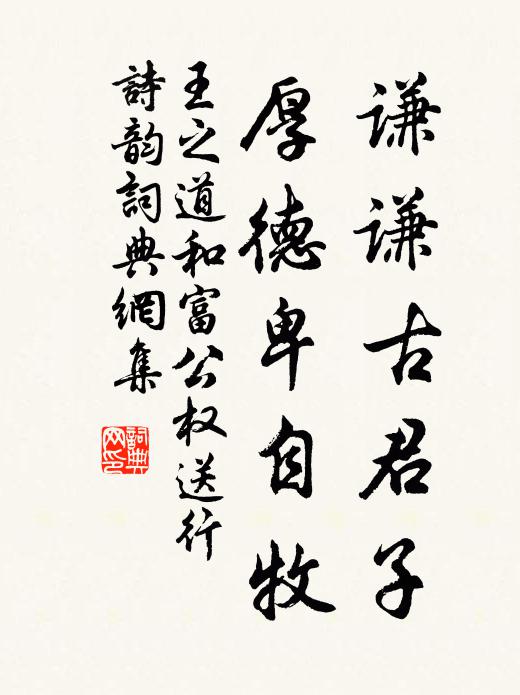 謙謙古君子
厚德卑自牧
王之道和富公权送行
詩韵詞典網集
詞典网印